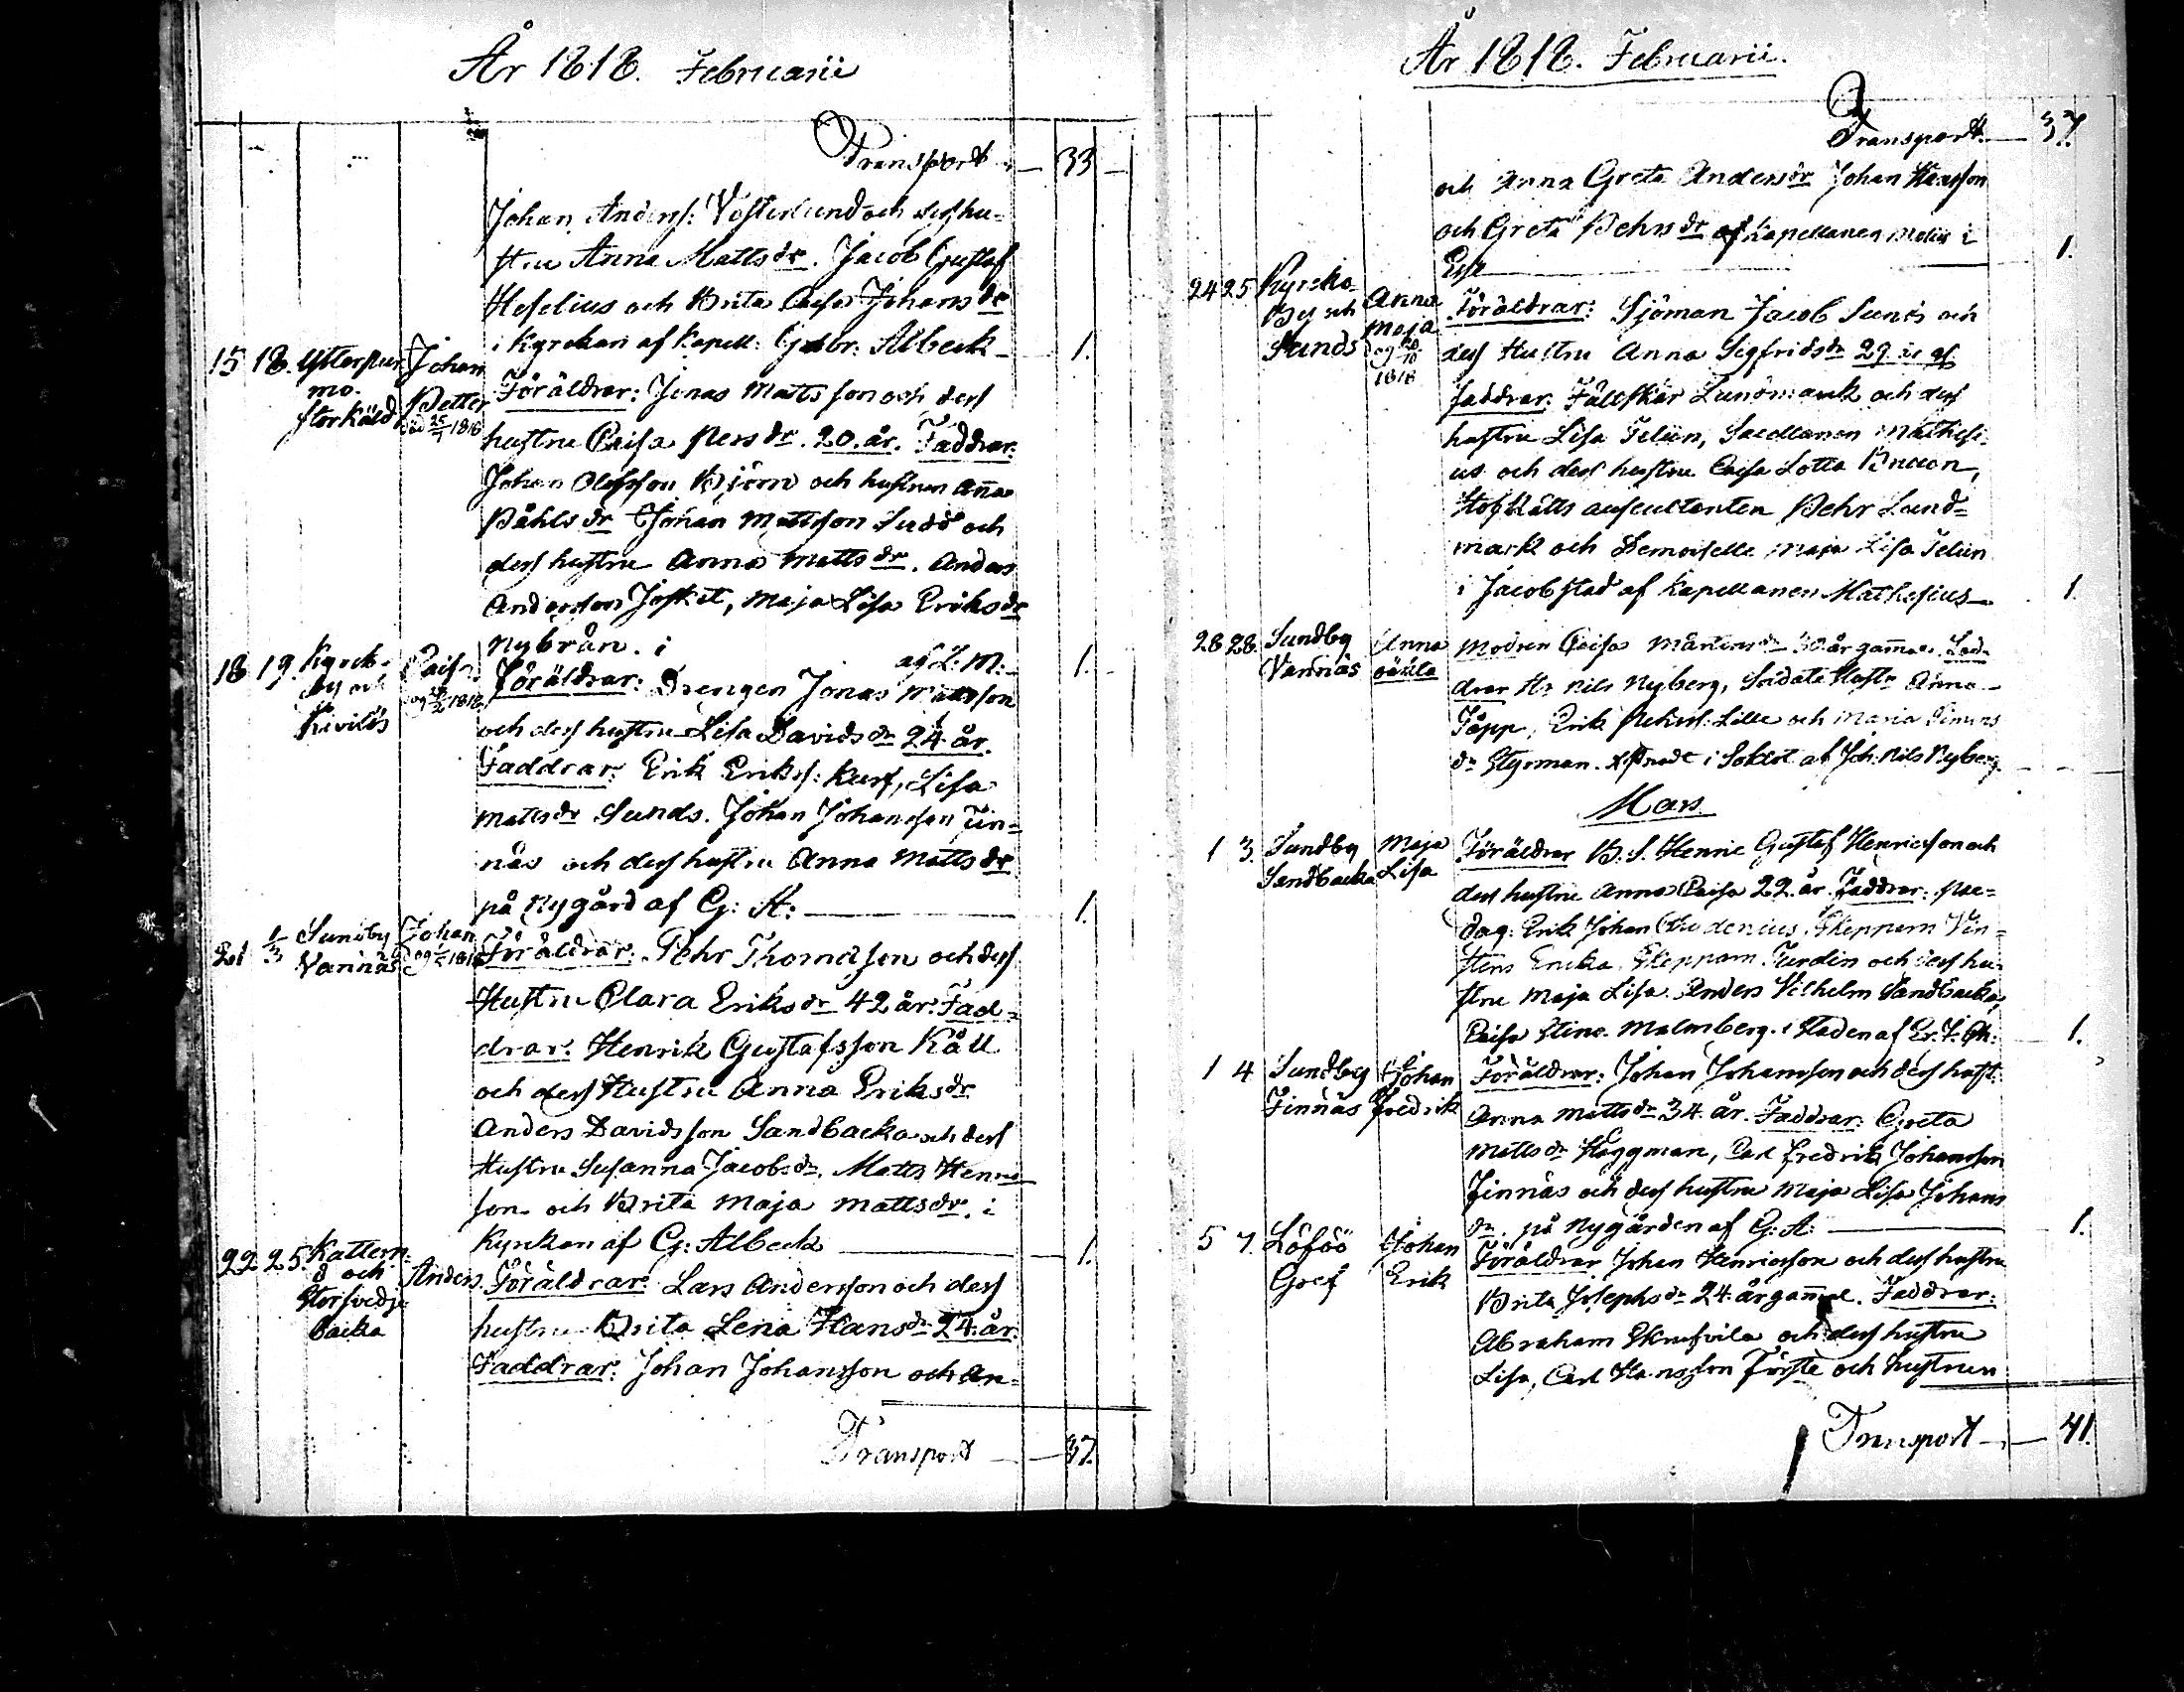 År 1818. Februarii
Transport 33
Johan Anders: Vesterlund och dess hu-
stru Anna Matts dr. Jacob Gustaf
Heselius och Brita Caisa Johans dr
i Kyrckan af Kapell: G. Albeck 1.
15 18. Ytterpur Johan Föräldrar: Jonas Matts son och dess
mo. Petter
Storkåld död 1818 hustru Caisa Pers dr. 20. år. Faddrar:
Johan Olofsson Björn och hustrun Anna
Påhls dr Johan Mattsson Sudd och
dess hustru Anna Matts dr. Anders
Andersson Joskit, Maja Lisa Eriks dr
Nybrån. i af L: M: 1.
18 19. Kyrck- Caisa Föräldrar: Drengen Jonas Mattsson
by och 1818
Kivilös och dess hustru Lisa Davids dr 24 år.
Faddrar: Erik Eriks: Kurf, Lisa
Matts dr Sunds. Johan Johansson Fin-
näs och dess hustru Anna Matts dr
på Nygård af G: A: 1.
21 1/3 Sundby Johan Föräldrar: Pehr Thomasson och dess
Vannäs 1818
Hustru Clara Eriks dr 42 år. Fad-
drar: Henrik Gustafsson Kåll
och dess Hustru Anna Eriks dr
Anders Davidsson Sandbacka och dess
Hustru Susanna Jacobs dr. Matts Henric
son och Brita Maja Matts dr. i
Kyrckan af G: Albeck 1.
22 25. Katter- Anders Föräldrar: Lars Andersson och dess
d och
Storsvedje hustru Brita Lena Hans dr 24. år.
backa
Faddrar: Johan Johansson och An-
Transport 37.
År 1818. Februarii.
Transport 37.
och Anna Greta Anders dr Johan
och Greta Pehrs dr af Kapellanen i
1.
24 25 Kyrcko- Anna Föräldrar: Sjöman Jacob Sunds och
By och Maja
Sunds 1818 dess Hustru Anna Sigfrids dr 29 år
Faddrar: Fältskär Lundmarck och dess
hustru Lisa Telin, Sacellanen Mathesi-
us och dess hustru Caisa Lotta
HofRätts auscultanten Pehr Lund-
mark och Demoiselle Maja Lisa Telin
i Jacobstad af Kapellanen Mathesius 1.
28 28. Sundby Anna Modren Caisa Mårtens dr 30 år gammal. Fad-
Vannäs oäkta drar Hr Nils Nyberg, Soldate Hustr Anna
Töpp, Erik Lille och Maria Simons
dr Styrman. i af Joh: Nils Nyberg.
Mars
1 3. Sundby Maja Föräldrar B. S. Henric Gustaf Henricsson och
Sandbacka Lisa
dess hustru Anna Caisa 22. år. Faddrar: Pae-
dag: Erik Johan Skepparen Vin-
stens Ericka. Skeppar. Turdin och dess hu-
stru Maja Lisa. Anders Vilhelm Sandbacka,
Caisa Stina Malmberg. i Staden af 1.
1 4 Sundby Johan Föräldrar: Johan Johansson och dess hust.
Finnäs Fredrik Anna Matts dr 34. år. Faddrar: Greta
Matts dr Häggman, Carl Fredrik Johansson
Finnäs och dess hustru Maja Lisa Johans
dr på Nygården af G: A: 1.
5 7. Löföö Johan Föräldrar Johan Henricsson och dess hustru
Gref Erik
Brita Josephs dr 24. år gammal. Faddrar:
Abraham Skrufvila och dess hustru
Lisa, Carl Hansson Förste och hustrun
Transport 41.